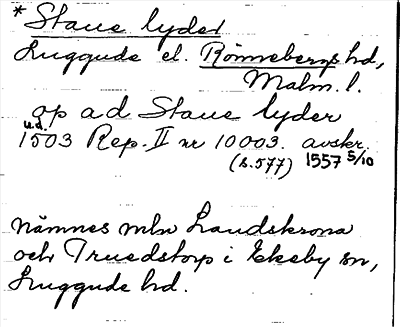 * Staue lyder
Luggude el. Rönnebergs hd,
Malm. l.
op ad Staue lyder
u.d.
1503 Rep. II nr 10003. avskr.
(s. 577) 1557 5/10
nämnes mln Landskrona
och Truedstorp i Ekeby sn,
Luggude hd.